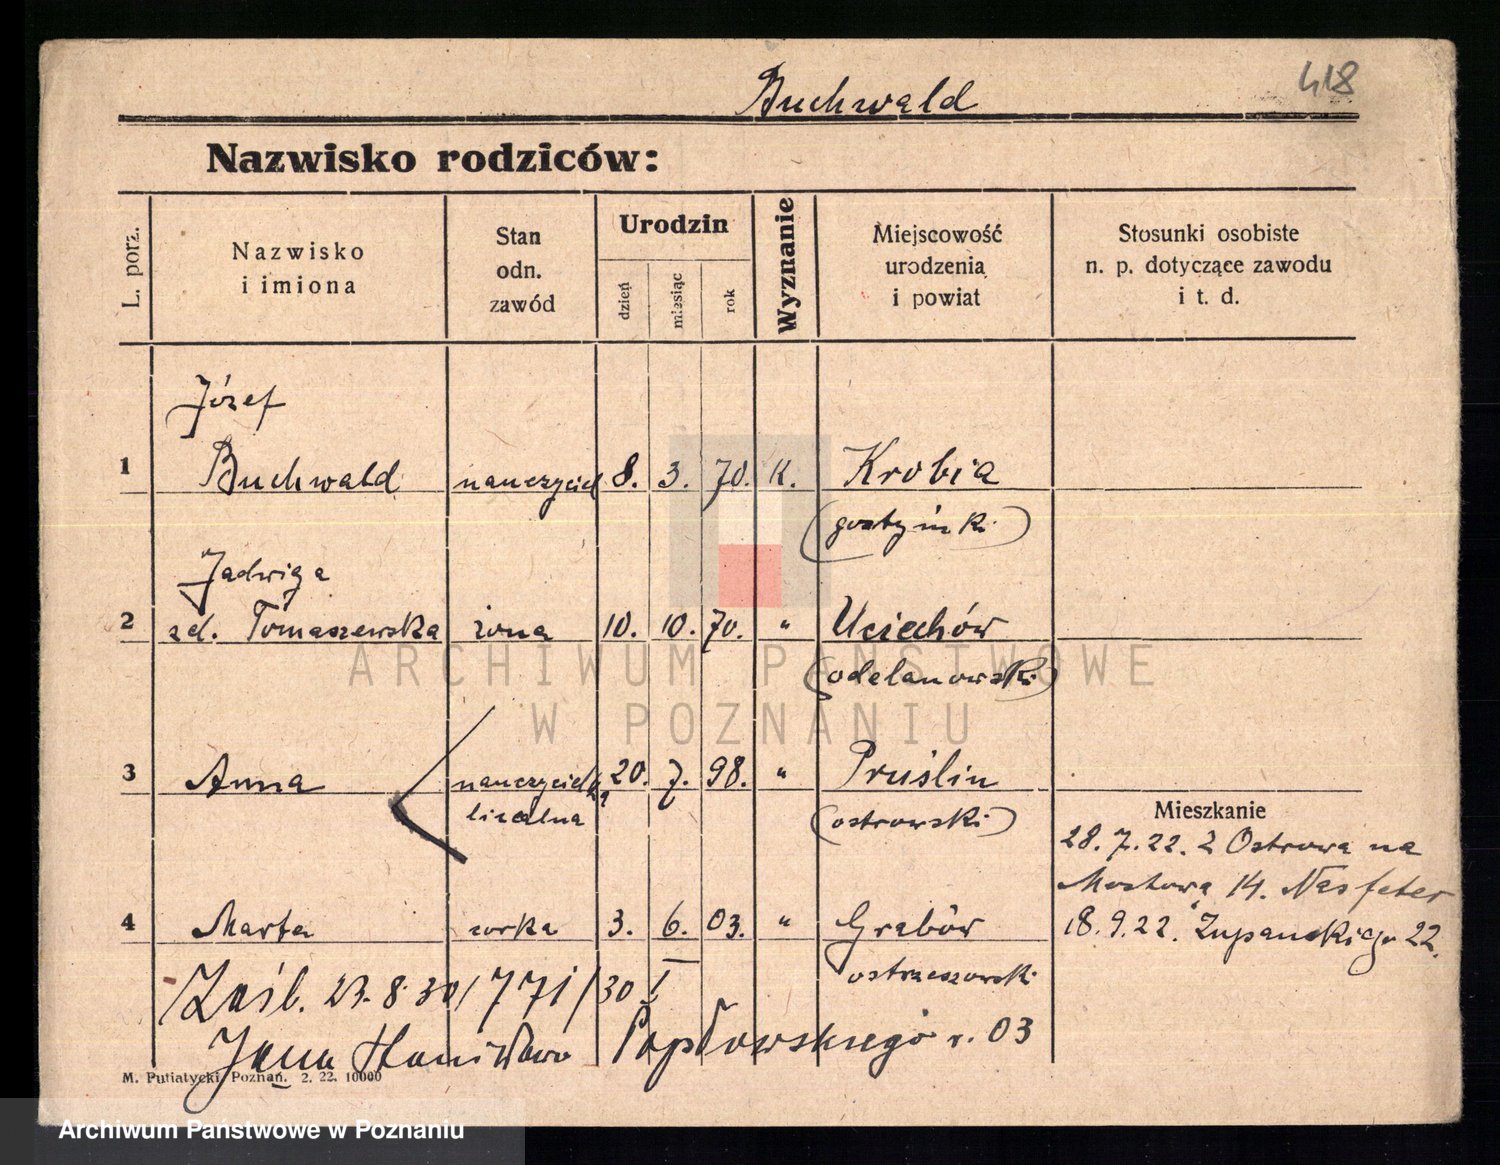 418
Buchwald
Nazwisko rodziców:
L. porz.
Nazwisko
i imiona
Stan
odn.
zawód
Urodzin
dzień
miesiąc
rok
Wyznanie
Miejscowość
urodzenia
i powiat
Stosunki osobiste
n. p. dotyczące zawodu
i t. d.
Józef
1 Buchwald nauczyciel 8. 3. 70. K. Krobia
(gostyński)
Jadwiga
2 zd. Tomaszewska żona 10. 10. 70. " Uciechów
(odelanowski)
3 Anna nauczycielka 20. 7. 98. " Pruślin
licealna (ostrowski)
Mieszkanie
28.7.22. z Ostrowa na
Mostowa 14.
18.9.22. Żupańskiego 22.
4 Marta córka 3. 6. 03. " Grabów
ostrzeszowski
Zaśl. 23.8.30/771/30 I
Jana Stanisława Popławskiego r. 03
M. Putiatycki, Poznań. 2. 22. 10000
ARCHIWUM PAŃSTWOWE
W POZNANIU
Archiwum Państwowe w Poznaniu